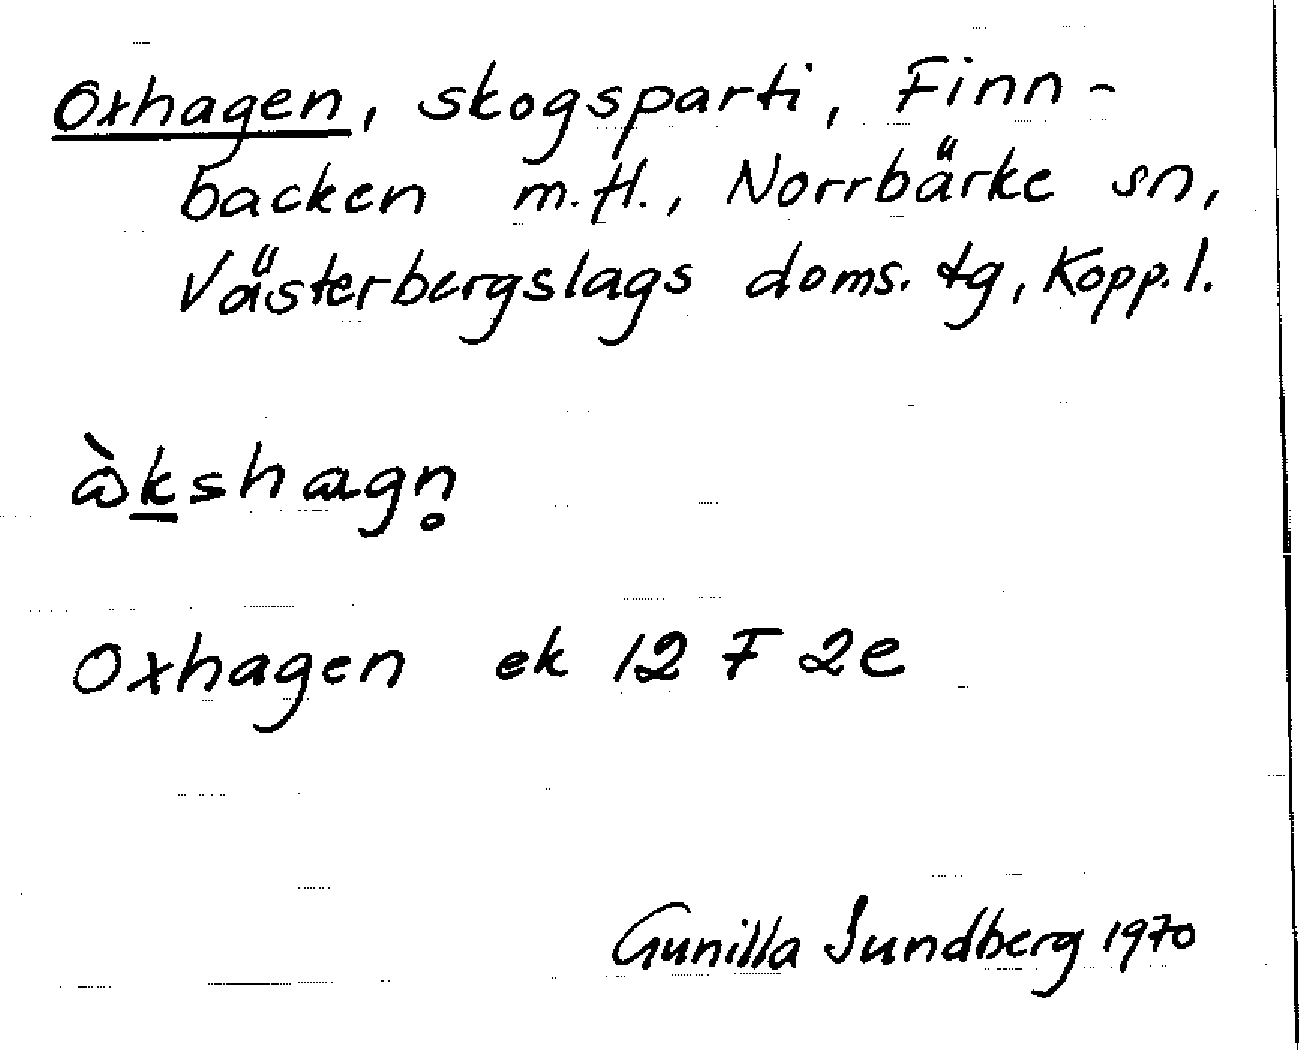 Oxhagen, skogsparti, Finn-
backen m.fl., Norrbärke sn,
Västerbergslags doms. tg, Kopp.l.
òkshagn̥
Oxhagen ek 12 F 2e
Gunilla Sundberg 1970